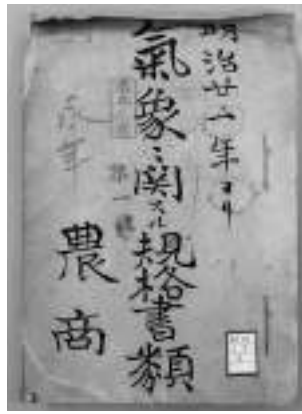 明治廿二年ヨリ
氣象ニ関スル規格書類
第一號
永年
農商